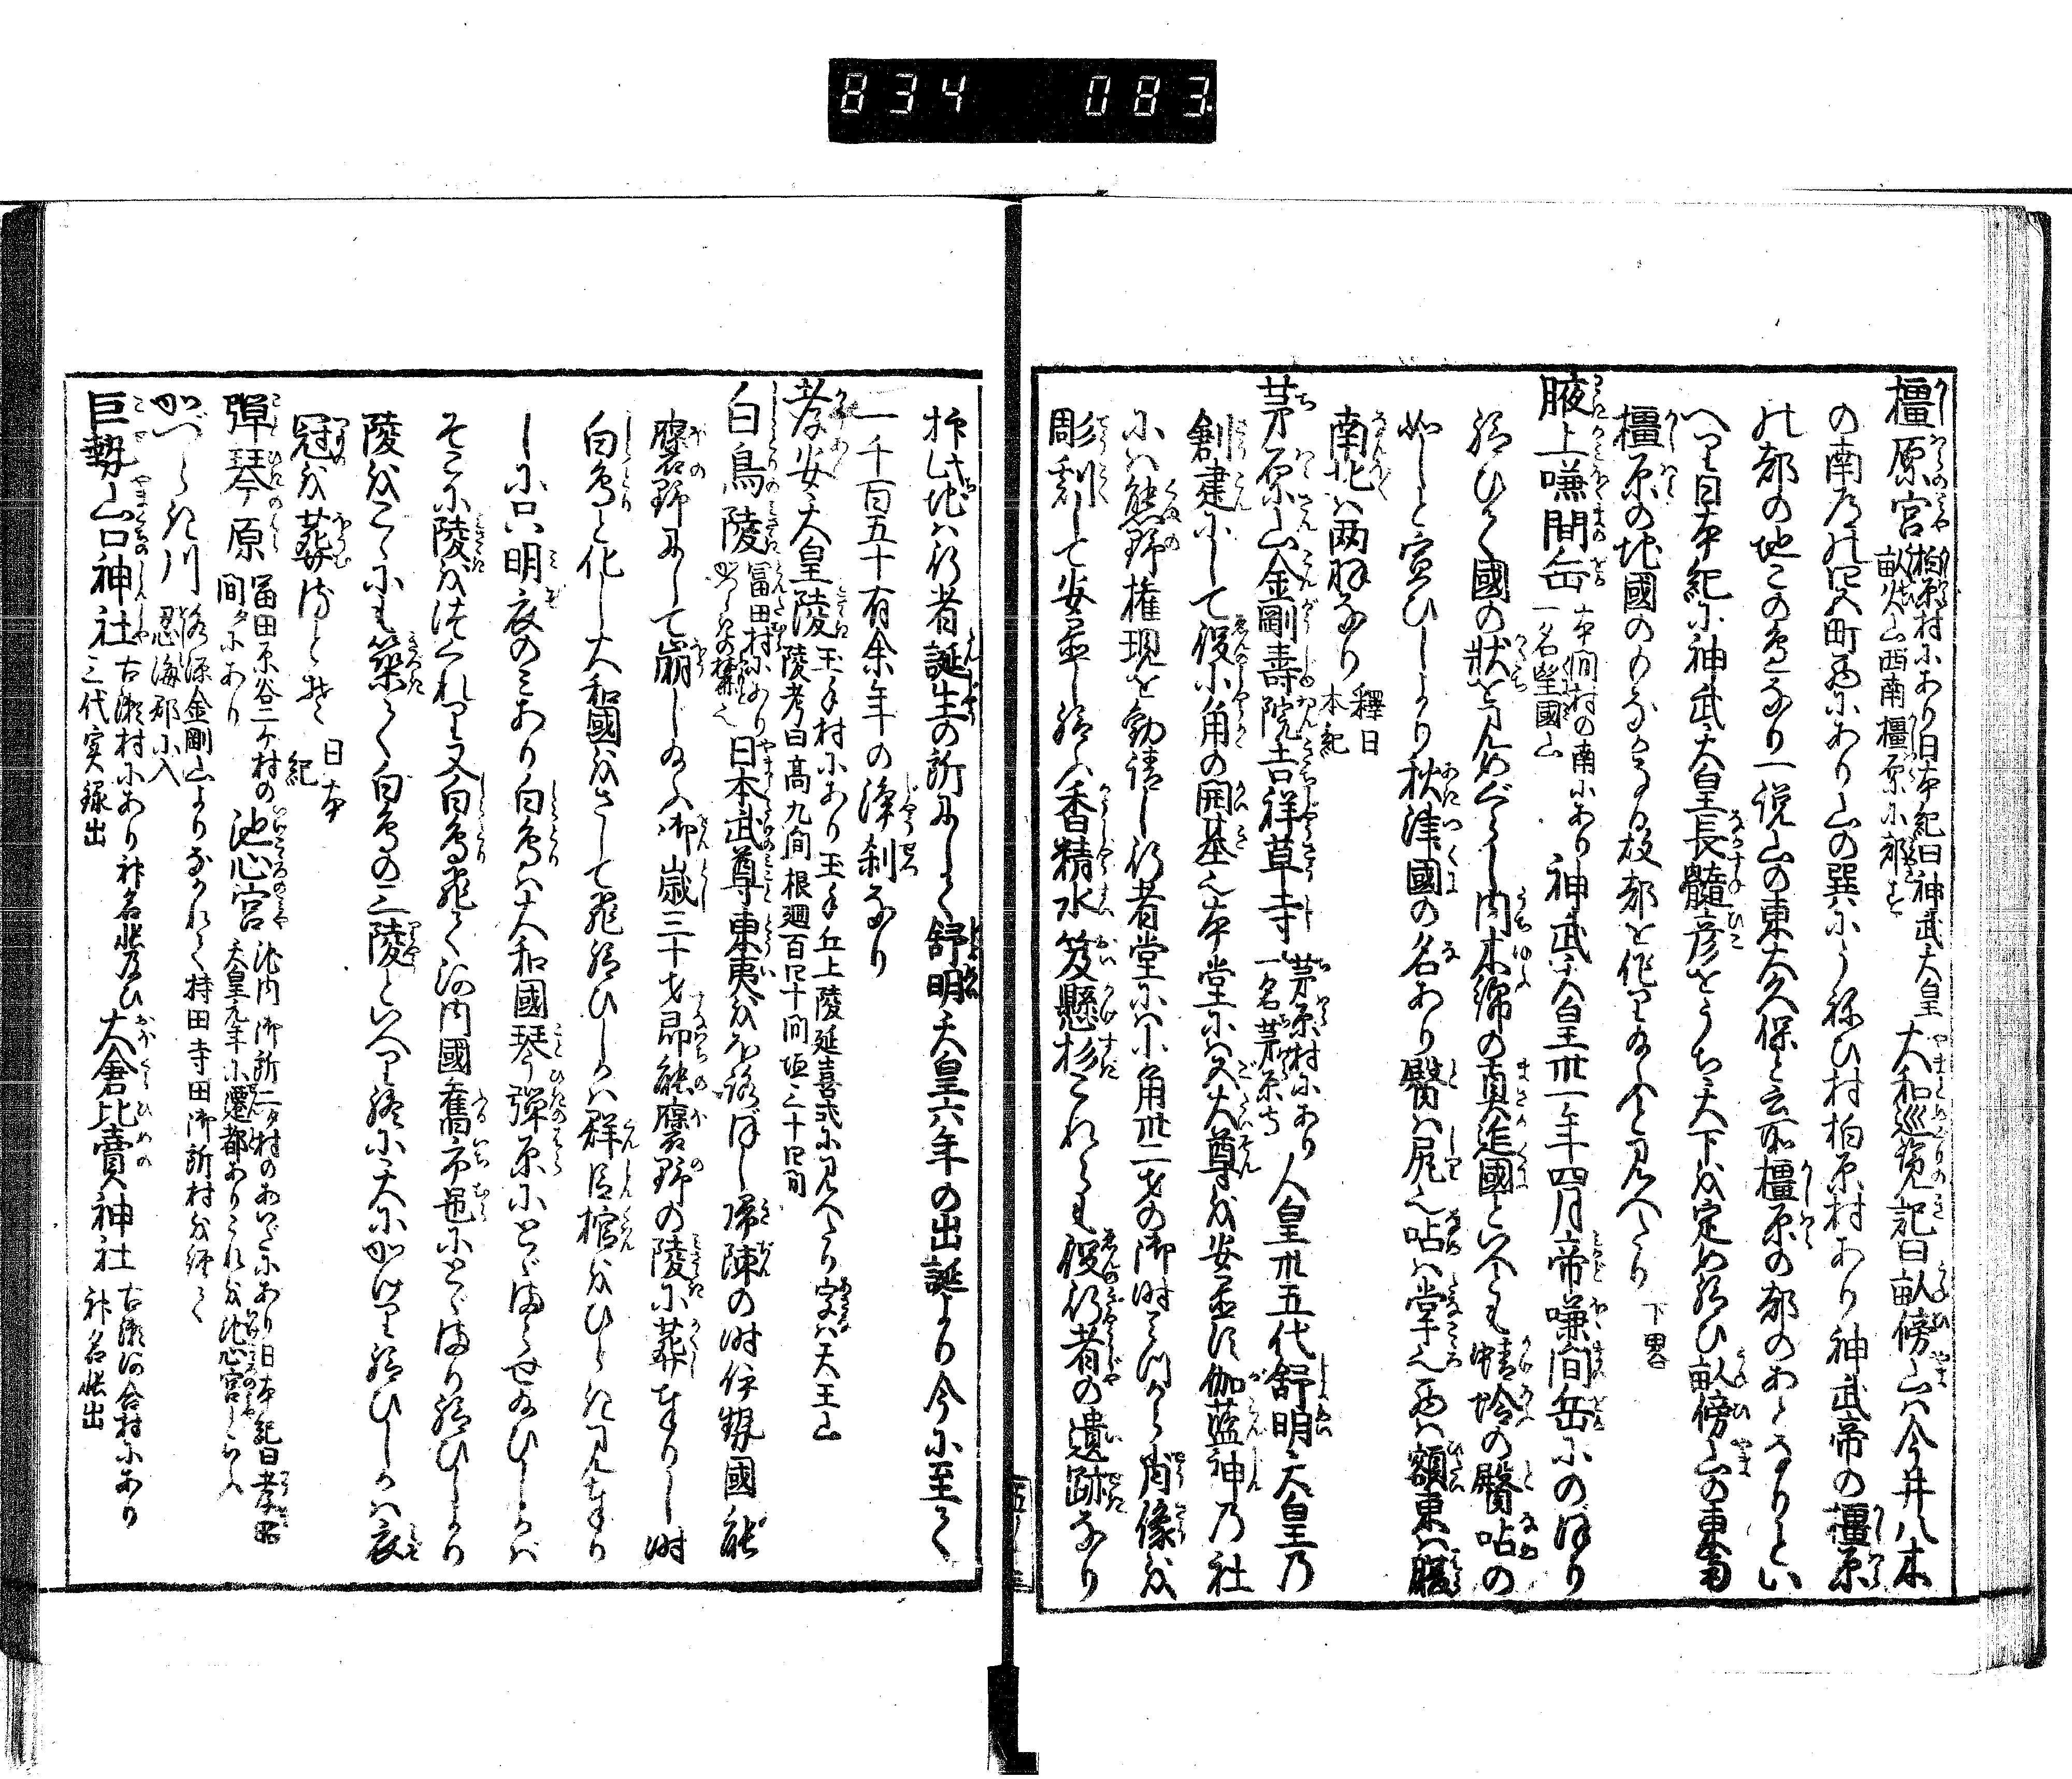 834 083
橿原宮 柏原村にあり日本紀曰神武天皇
畝火山西南橿原に都す 大和巡覧記曰畝傍山は今井八木
の南乃方四五町西にあり山の巽にうねひ村柏原村あり神武帝の橿原
の都の地この辺なり一説山の東大久保と云所橿原の都のあとなりとい
へり日本紀に神武天皇長髄彦をうち天下を定め給ひ畝傍山の東南
橿原の地國のもなかなる故都を作り給ふと見へたり 下畧
腋上嗛間岳 本間村の南にあり
一名望國山 神武天皇卅一年四月帝嗛間岳にのぼり
給ひて國の状を見めぐらし内木綿の真迮國といへども蜻蛉の臀呫の
如しと宣ひしより秋津國の名あり臀は尻也呫は掌也西は額東は膓
南北は両羽なり 釋日
本紀
茅原山金剛壽院吉祥草寺 茅原村にあり
一名茅原寺 人皇卅五代舒明天皇乃
創建にして役小角の開基也本堂には五大尊を安置し伽藍神乃社
には熊野権現を勧請し行者堂には小角卅二才の御時みづから肖像を
彫刻して安置し給ふ香精水笈懸杉これらも役行者の遺跡なり
抑此地は行者誕生の所にして舒明天皇六年の出誕より今に至て
一千百五十有余年の浄刹なり
孝安天皇陵 玉手村にあり玉手丘上陵延喜式に見へたり字は天王山
陵考曰高九間根廻百四十間垣三十四間
白鳥陵 冨田村にあり
日本武尊東夷を亡ほし帰陣の時伊勢國能
褒野にして崩じ給ふ御歳三十才即能褒野の陵に葬奉りし時
白鳥と化し大和國をさして飛給ひしかは群臣棺をひらき見奉り
しに只明衣のみあり白鳥は大和國琴弾原にとゞまらせ給ひしかば
そこに陵をつくれり又白鳥飛て河内國舊市邑にとゞまり給ひしより
陵をこゝにも築く白鳥の三陵といへり終に天にかけり給ひしかは衣
冠を葬けるとぞ 日本
紀
弾琴原 冨田原谷二ケ村の
間タにあり 池心宮 池内御所二タ村のあいだにあり日本紀曰孝昭
天皇元年に遷都ありこれを池心宮といふ
かづらき川 水源金剛山よりながれて持田寺田御所村を経て
忍海郡に入
巨勢山口神社 古瀬村にあり神名帳及ひ
三代実録出 大倉比賣神社 古瀬河合村にあり
神名帳出